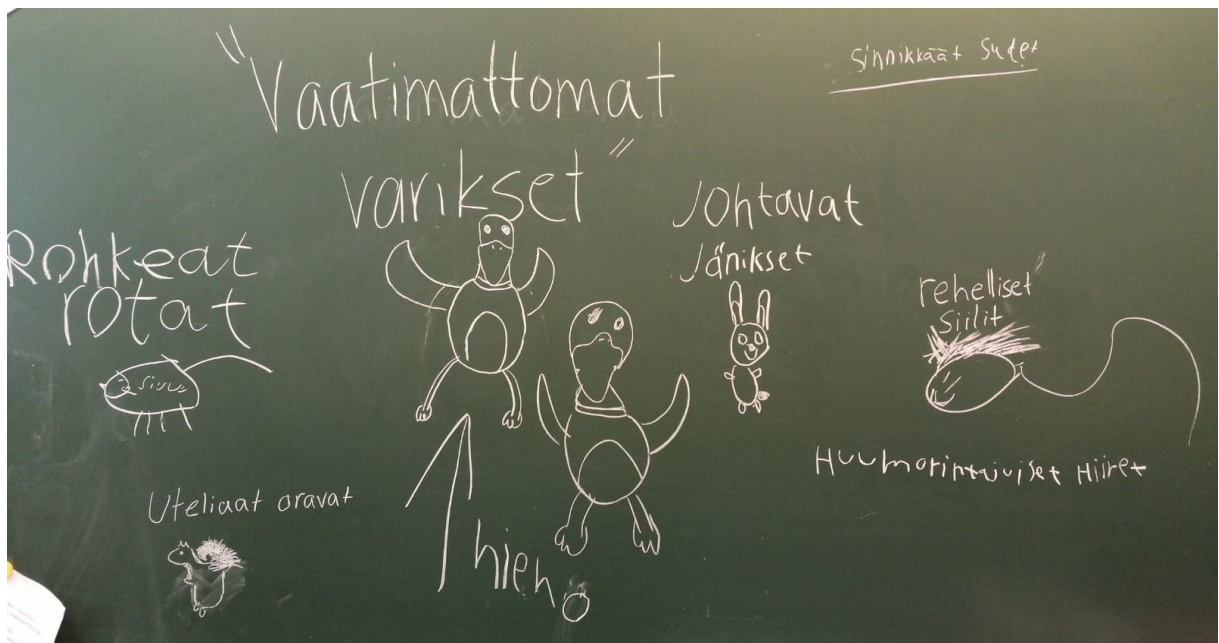 "Vaatimattomat
varikset"
Sinnikkäät Sudet
Rohkeat
rotat
Johtavat
Jänikset
rehelliset
Siilit
Sivu
Huumorintajuiset Hiiret
Uteliaat oravat
hieno